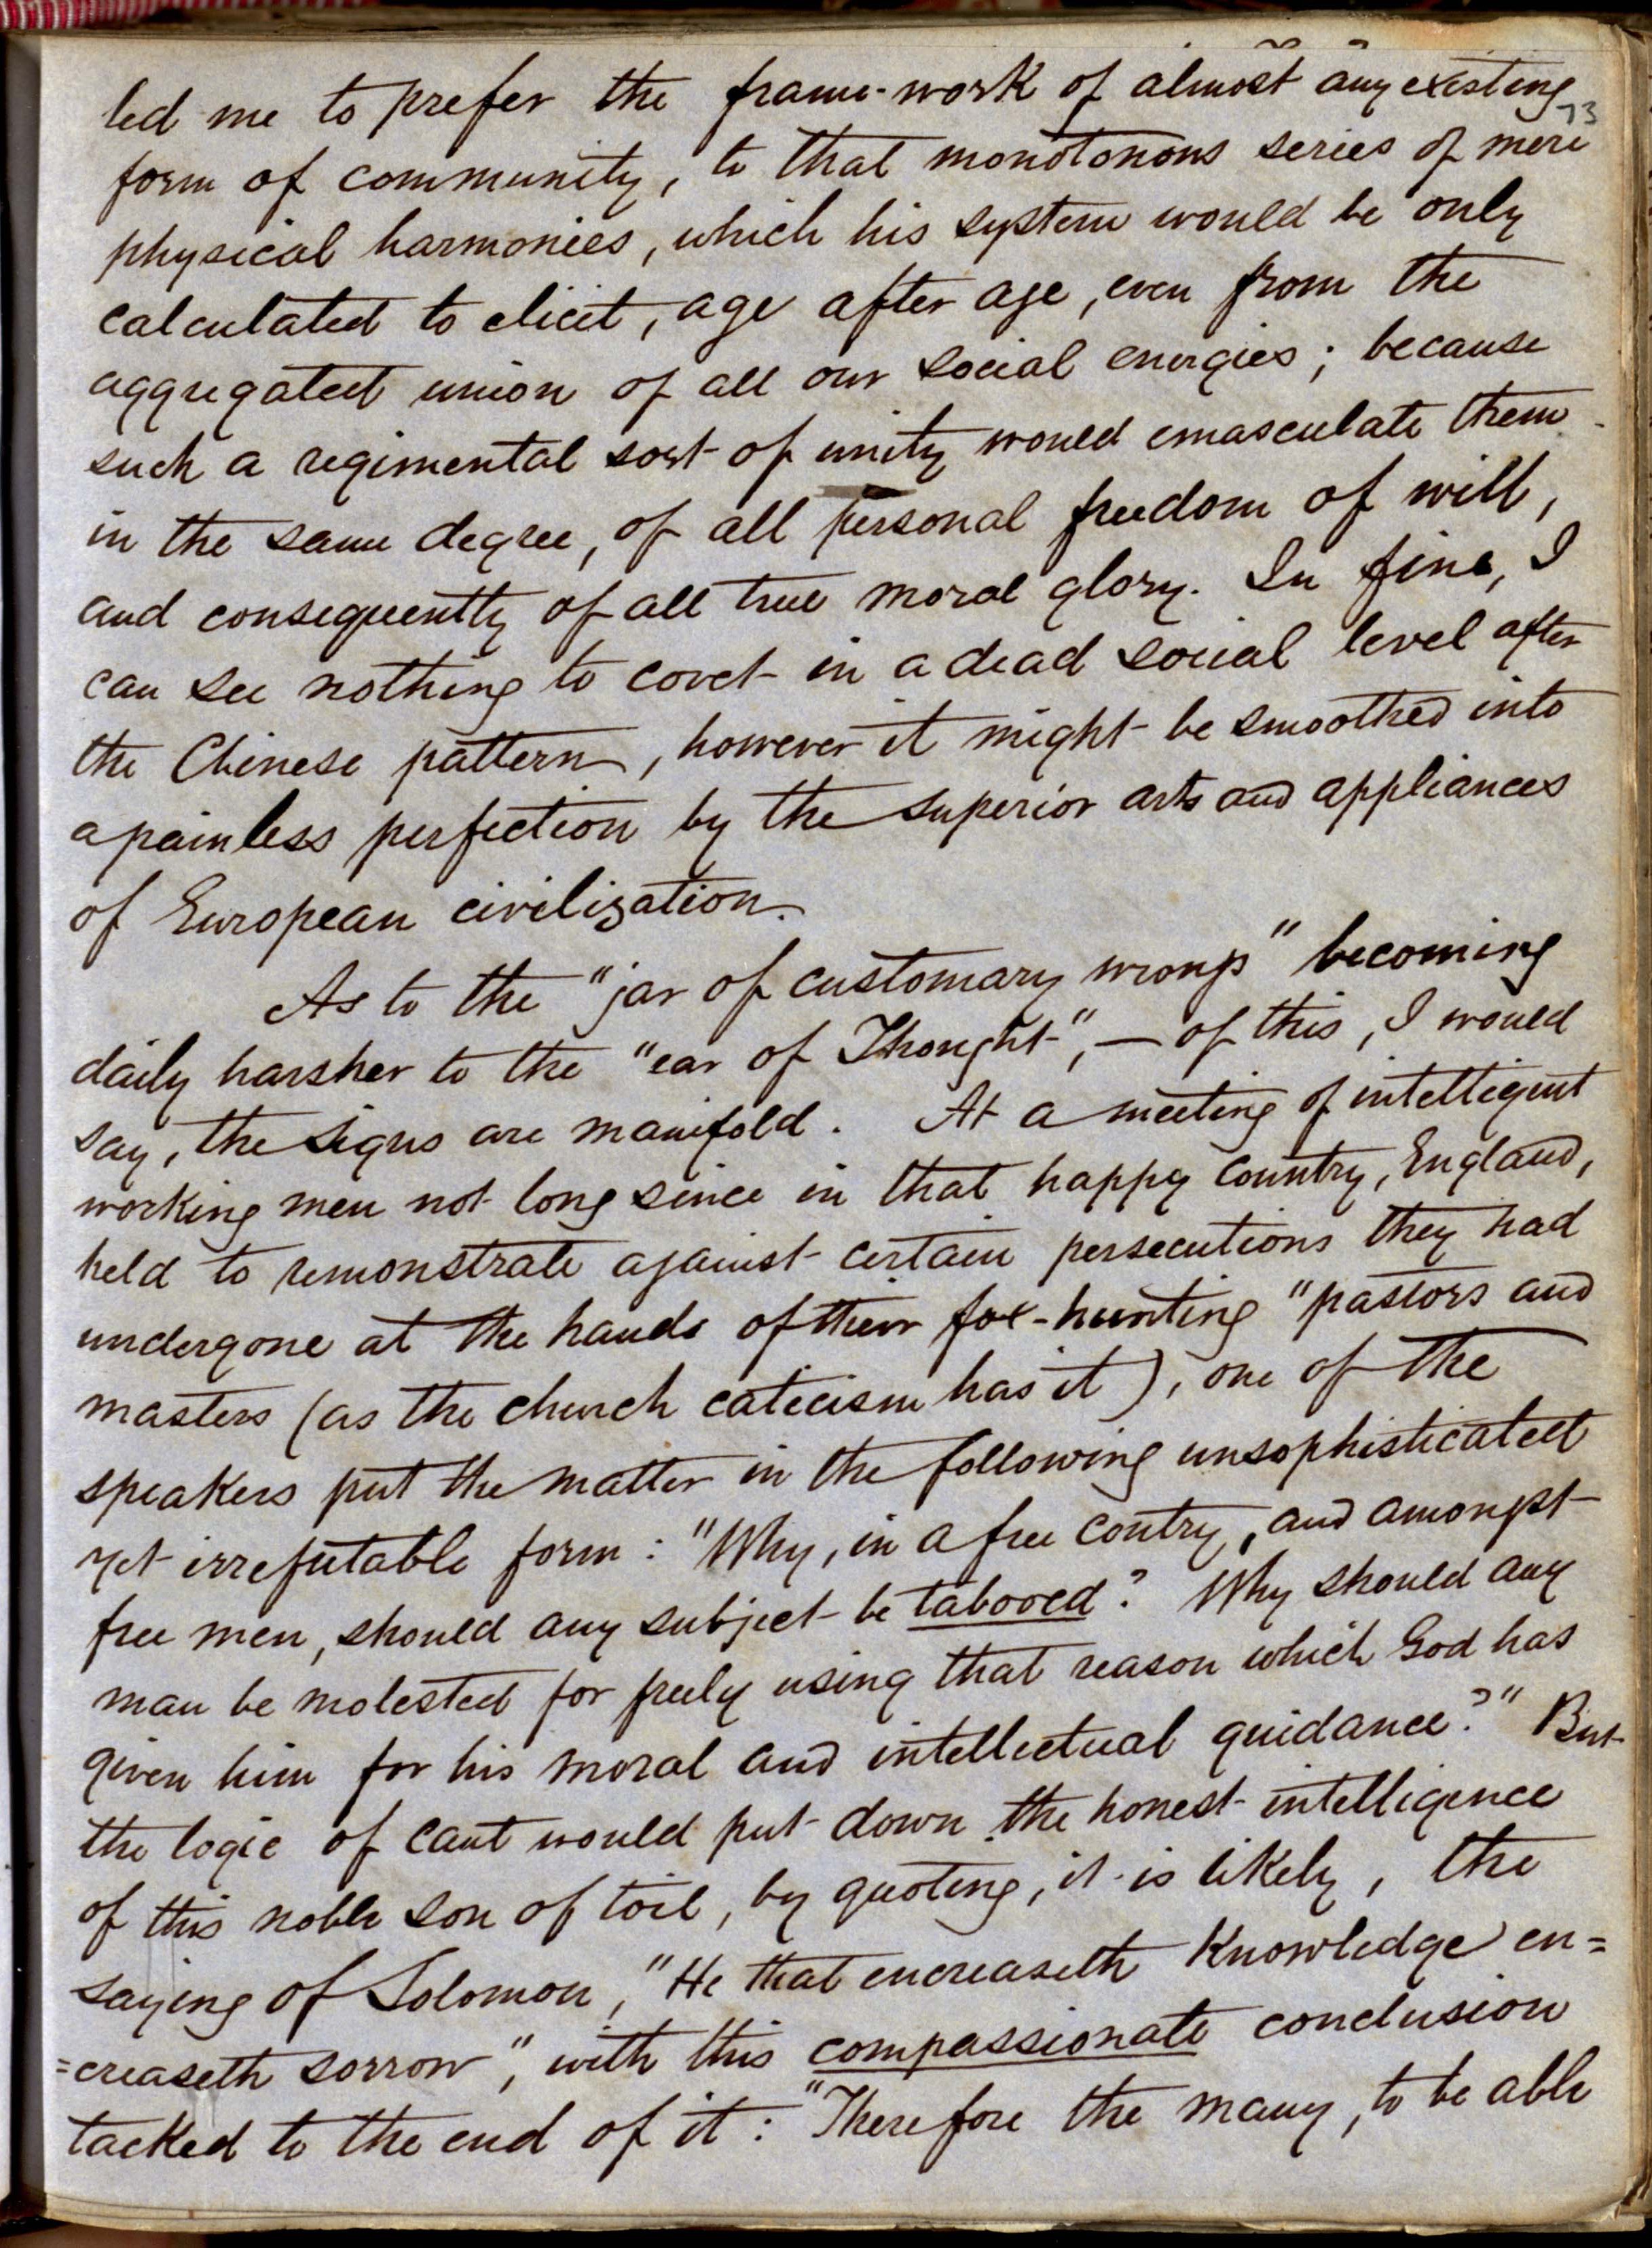 led me to prefer the frame-work of almost any existing
73
form of community, to that monotonous series of mere
physical harmonies, which his system would be only
calculated to elicit, age after age, even from the
aggregated union of all our social energies; because
such a regimental sort of unity would emasculate them
in the same degree, of all personal freedom of will,
and consequently of all true moral glory. In fine, I
can see nothing to covet in a dead social level after
the Chinese pattern, however it might be smoothed into
a painless perfection by the superior arts and appliances
of European civilization.
As to the "jar of customary wrongs" becoming
daily harsher to the "ear of Thought", — of this, I would
say, the signs are manifold. At a meeting of intelligent
working men not long since in that happy country, England,
held to remonstrate against certain persecutions they had
undergone at the hands of their fox-hunting "pastors and
masters (as the church catecism has it), one of the
speakers put the matter in the following unsophisticated
yet irrefutable form: "Why, in a free contry, and amongst
free men, should any subject be tabooed? Why should any
man be molested for freely using that reason which God has
given him for his moral and intellectual guidance?" But
the logic of cant would put down the honest intelligence
of this noble son of toil, by quoting, it is likely, the
saying of Solomon, "He that encreaseth knowledge en=
=creaseth sorrow", with this compassionate conclusion
tacked to the end of it: "Therefore the many, to be able